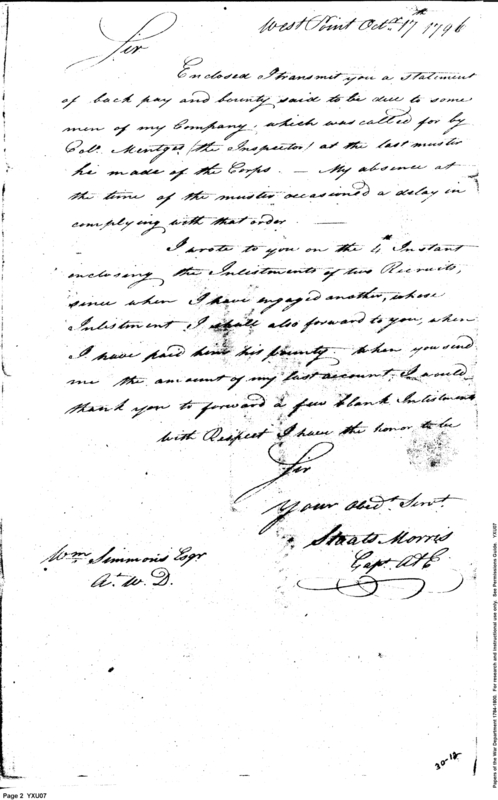 West Point Octr. 17th 1796
Sir
Enclosed I transmit you a statement
of back pay and bounty said to be due to some
men of my Company, which was called for by
Colo. Mentges (the Inspector) at the last muster
he made of the Corps. — My absence at
the time of the muster occasioned a delay in
complying with that order. —
I wrote to you on the 4th Instant
enclosing the Inlistments of two Recruits,
since when I have engaged another, whose
Inlistment I shall also forward to you, when
I have paid him his bounty. When you send
me the amount of my last account I would
thank you to forward a few blank Inlistments
With Respect I have the honor to be
Sir
Your Obedt. Servt.
Staats Morris
Capt. A&E
Wm Simmons Esqr
At. W. D.
30-12
Page 2 YXU07
Papers of the War Department 1784-1800. For research and instructional use only. See Permissions Guide. YXU07